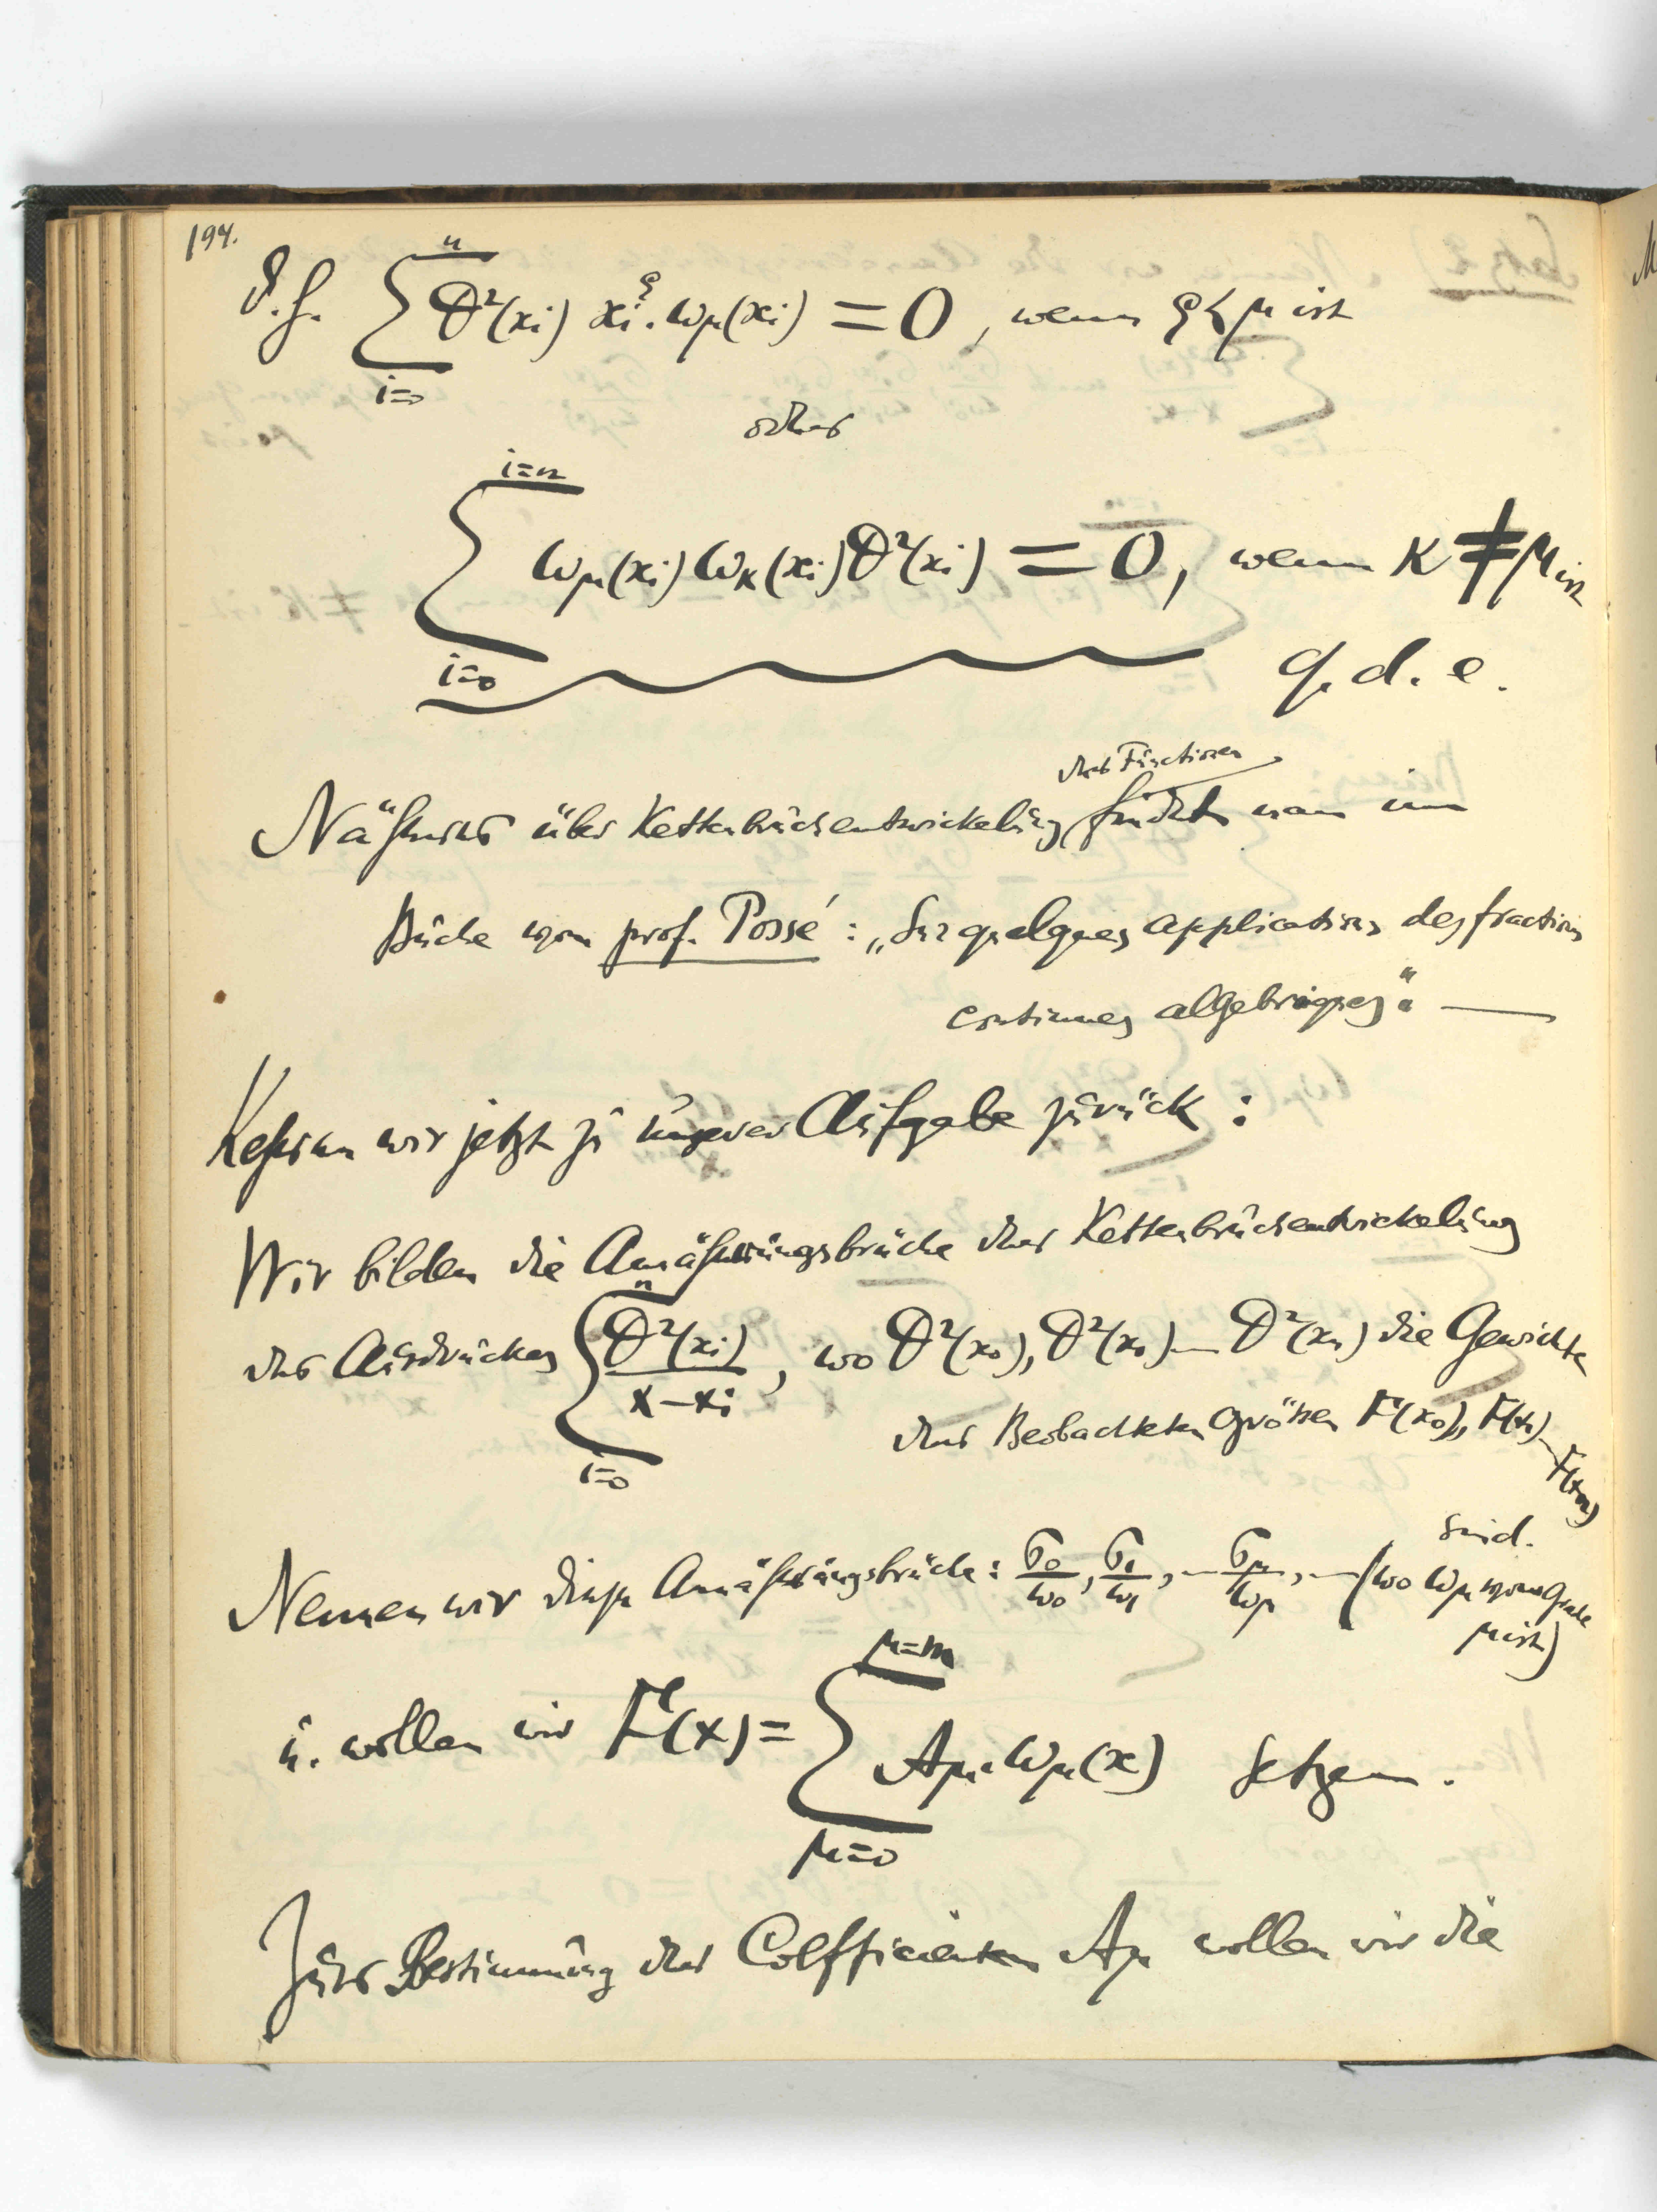 194.
d.h. $\sum_{i=0}^{n} \vartheta^2(x_i) x_i^{\varrho} \cdot \omega_\mu(x_i) = 0$, wenn $\varrho < \mu$ ist
oder
$\sum_{i=0}^{i=n} \omega_\mu(x_i) \omega_k(x_i) \vartheta^2(x_i) = 0$, wenn $k \neq \mu$ ist
q. d. e.
der Functionen
Näheres über Kettenbruchentwickelung findet man im
Buche von prof. Possé: „Sur quelques applications des fractions
continues algebriques“. —
Kehren wir jetzt zu unserer Aufgabe zurück:
Wir bilden die Annäherungsbrüche der Kettenbruchentwickelung
des Ausdruckes $\sum_{i=0}^{n} \frac{\vartheta^2(x_i)}{x - x_i}$, wo $\vartheta^2(x_0), \vartheta^2(x_1) — \vartheta^2(x_n)$ die Gewichte
der Beobachteten Größen $F(x_0), F(x_1) — F(x_n)$
sind.
Nennen wir diese Annäherungsbrüche: $\frac{\sigma_0}{\omega_0}, \frac{\sigma_1}{\omega_1}, — \frac{\sigma_\mu}{\omega_\mu}, —$ (wo $\omega_\mu$ vom Grade
$\mu$ ist)
u. wollen wir $F(x) = \sum_{\mu=0}^{\mu=m} A_\mu \cdot \omega_\mu(x)$ setzen.
Zur Bestimmung der Coefficienten $A_\mu$ wollen wir die